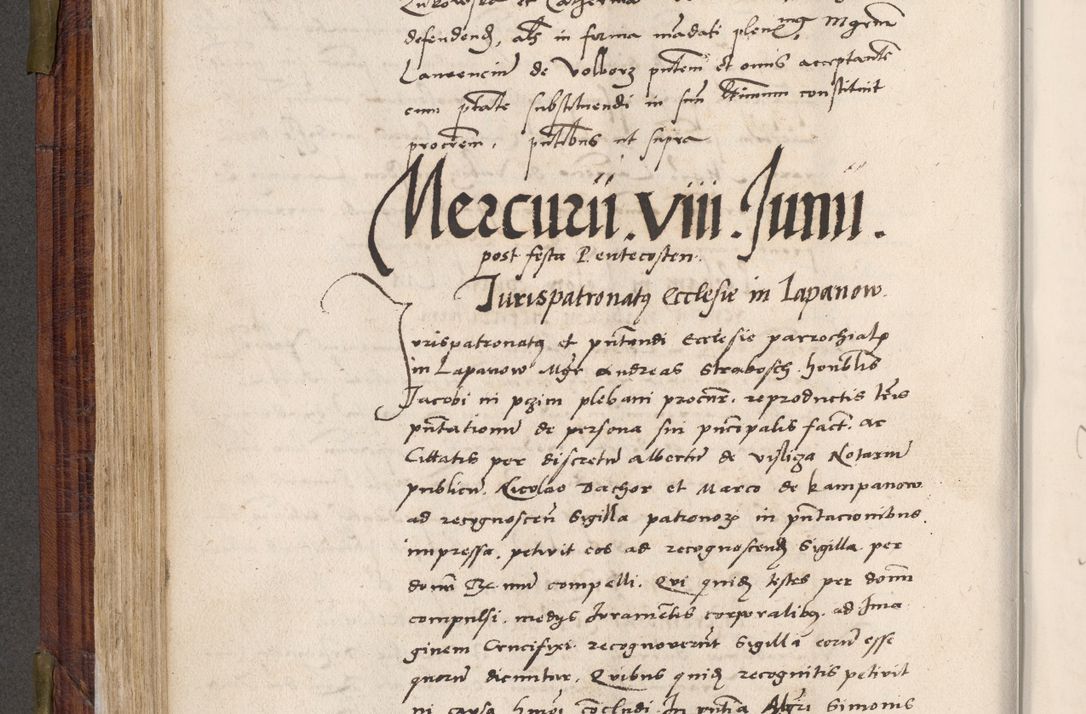 defendend, als in forma mandati plen mgrm
Laurencium de Volborz pntem et onus acceptante
cum ptate substituendi in sui constituit
procrem, pntibus ut supra
Mercurii . viii . Junii .
post festa Pentecosten.
Jurispatronatus Ecclesie in Lapanow.
Jurispatronatus et pntandi Ecclesie parrochialis
in Lapanow Mgr Andreas Strabosch honblis
Jacobi in pzim plebani procur. reproductis lris
pntationum de persona sui principalis fact. ac
Cittatis per discretum albertum de visliza Notarium
publicum. Nicolao Dachor et Marco de kampanow
ad recognoscen sigilla patronorum in pntacionibus
impressa. petivit eos ad recognoscend sigilla per
domi compelli. Qui quid testes per domi
compulsi. medys Juramentis corporalibus. ad Ima
ginem Crucifixi recognoverunt sigilla eorum esse
quorum dicuntur. Quibus quid recognitis petivit
in causa hmoi concludi. In pntia Mgri Simonis